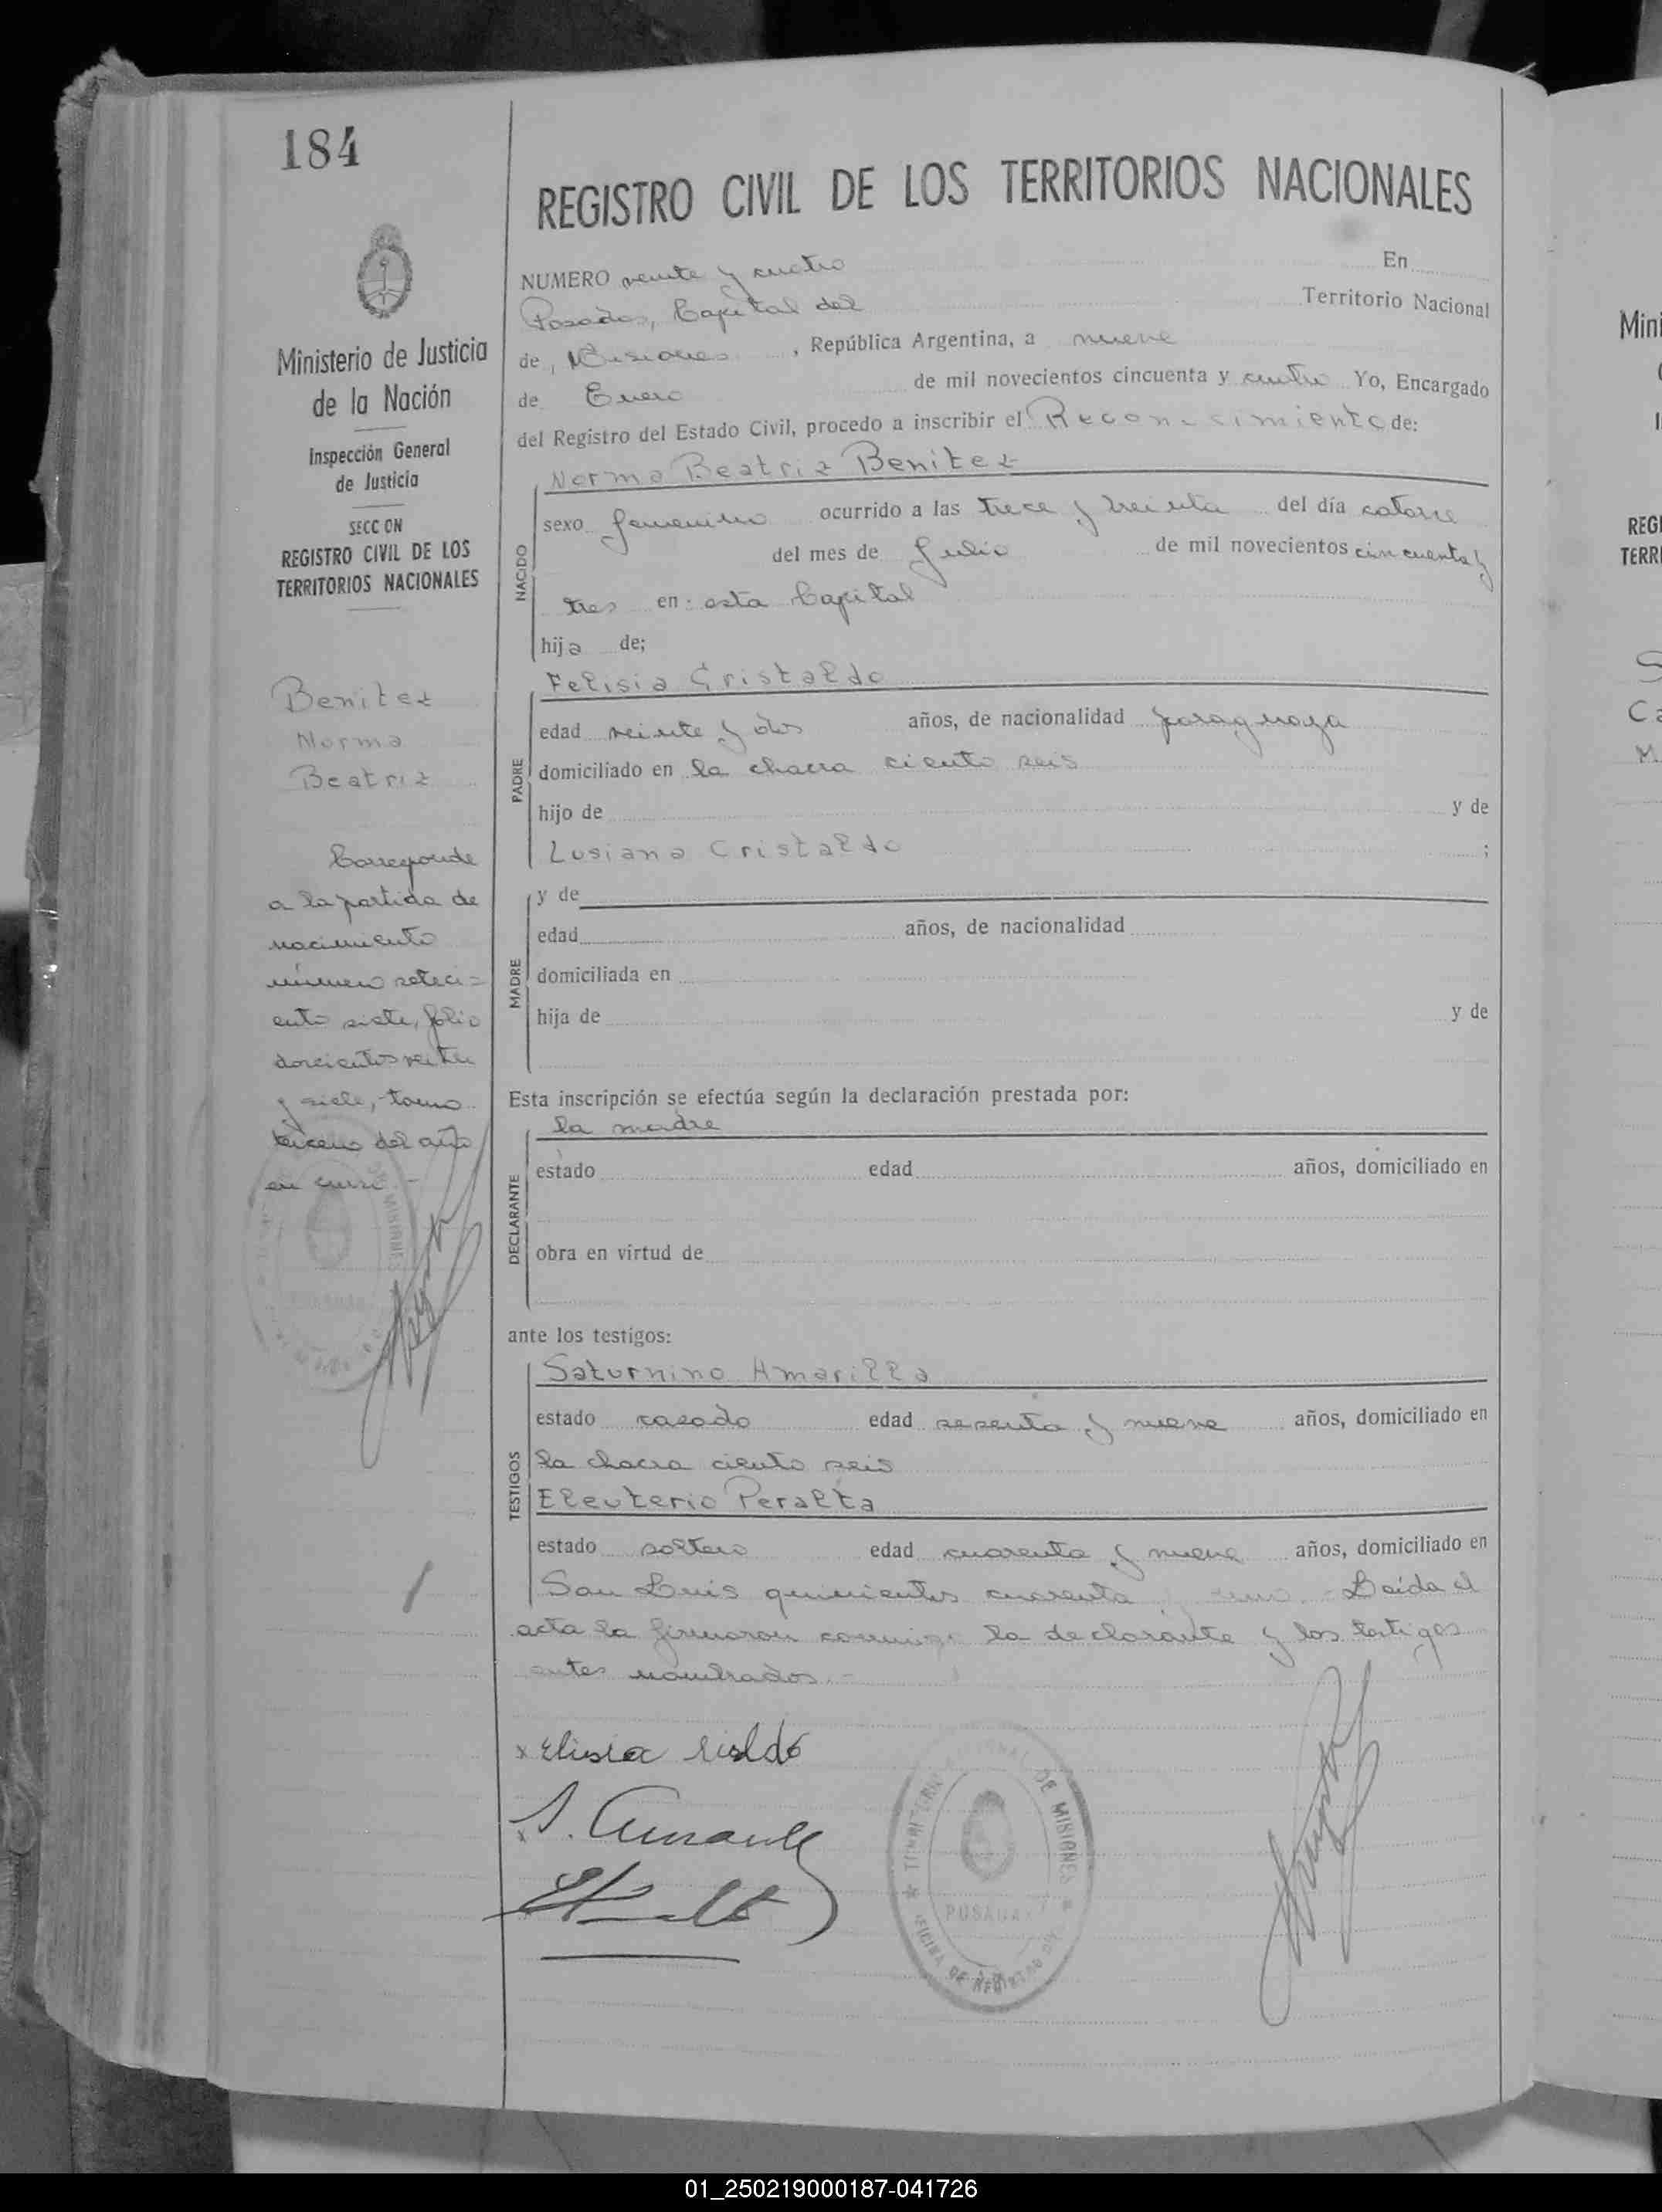 184
REGISTRO CIVIL DE LOS TERRITORIOS NACIONALES
Ministerio de Justicia
de la Nación
Inspección General
de Justicia
SECCION
REGISTRO CIVIL DE LOS
TERRITORIOS NACIONALES
Benitez
Norma
Beatriz
Corresponde
a la partida de
nacimiento
número seteci=
ento siete, folio
doscientos veinte
y siete, tomo
tercero del año
en curso.-
NUMERO veinte y cuatro En
Posadas, Capital del Territorio Nacional
de, Misiones, República Argentina, a nueve
de Enero de mil novecientos cincuenta y cuatro Yo, Encargado
del Registro del Estado Civil, procedo a inscribir el Reconocimiento de:
Norma Beatriz Benitez
NACIDO
sexo femenino ocurrido a las trece y treinta del día catorce
del mes de Julio de mil novecientos cincuenta y
tres en esta Capital
hija de;
Felisia Cristaldo
PADRE
edad veinte y dos años, de nacionalidad paraguaya
domiciliado en la chacra ciento seis
hijo de y de
Lusiana Cristaldo ;
MADRE
y de
edad años, de nacionalidad
domiciliada en
hija de y de
Esta inscripción se efectúa según la declaración prestada por:
la madre
DECLARANTE
estado edad años, domiciliado en
obra en virtud de
ante los testigos:
Saturnino Amarilla
TESTIGOS
estado casado edad sesenta y nueve años, domiciliado en
la chacra ciento seis
Eleuterio Peralta
estado soltero edad cuarenta y nueve años, domiciliado en
San Luis quinientos cuarenta y uno.- Leída el
acta la firmaron conmigo la declarante y los testigos
antes nombrados.-
DE MISIONES
POSADAS
OFICINA DE REGISTRO
01_250219000187-041726